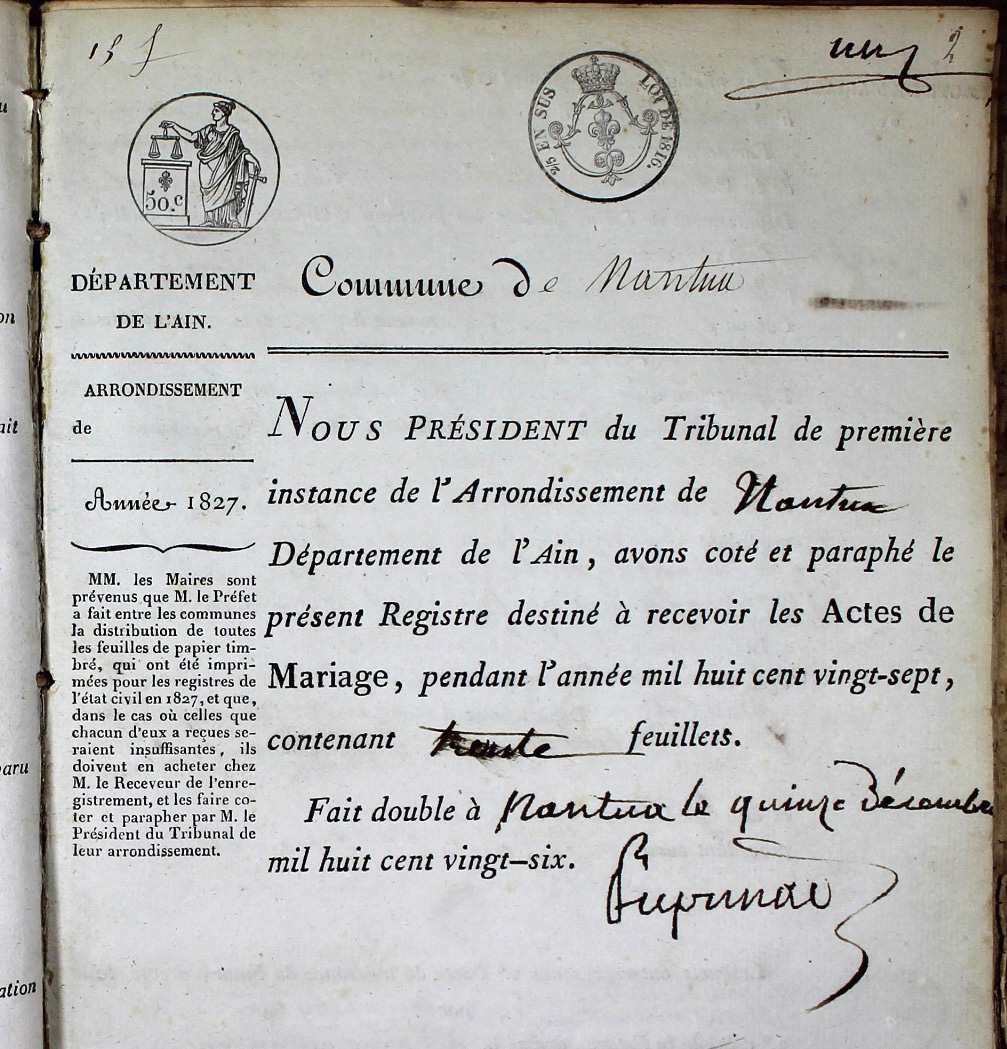 2
50.c
2/5 EN SUS
LOI DE 1816.
DÉPARTEMENT
DE L'AIN.
ARRONDISSEMENT
de
Année 1827.
MM. les Maires sont
prévenus que M. le Préfet
a fait entre les communes
la distribution de toutes
les feuilles de papier tim-
bré, qui ont été impri-
mées pour les registres de
l'état civil en 1827, et que,
dans le cas où celles que
chacun d'eux a reçues se-
raient insuffisantes, ils
doivent en acheter chez
M. le Receveur de l'enre-
gistrement, et les faire co-
ter et parapher par M. le
Président du Tribunal de
leur arrondissement.
Commune de Nantua
NOUS PRÉSIDENT du Tribunal de première
instance de l'Arrondissement de Nantua
Département de l'Ain, avons coté et paraphé le
présent Registre destiné à recevoir les Actes de
Mariage, pendant l'année mil huit cent vingt-sept,
contenant trente feuillets.
Fait double à Nantua le quinze Décembre
mil huit cent vingt-six.
on
ait
paru
ation